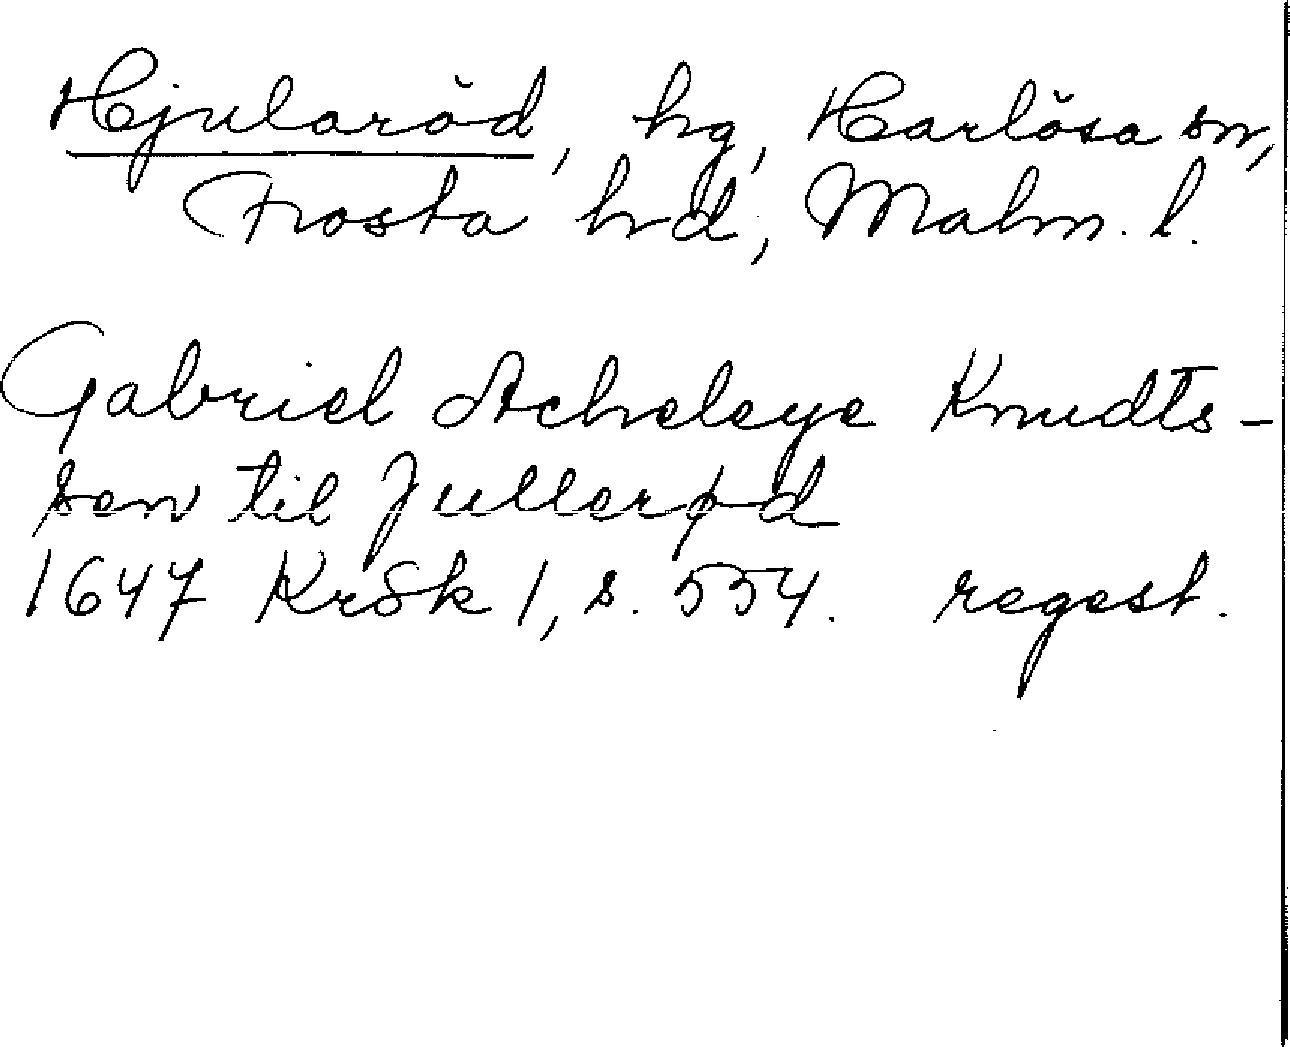 Hjularöd, hg, Harlösa sn,
Frosta hd, Malm. l.
Gabriel Acheleye Knudts-
sen til Jullerød
1647 KrSk 1, s. 554. regest.